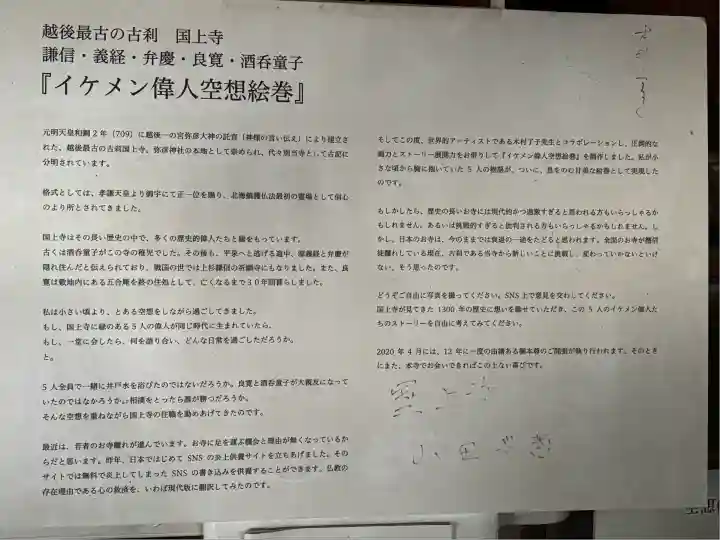 越後最古の古刹 国上寺
謙信・義経・弁慶・良寛・酒呑童子
『イケメン偉人空想絵巻』
元明天皇和銅2年（709）に越後一の宮弥彦大神の託宣（神様の言い伝え）により建立さ
れた、越後最古の古刹国上寺。弥彦神社の本地として崇められ、代々別当寺として古記に
分明されています。
格式としては、孝謙天皇より御宇にて正一位を賜り、北海鎮護仏法最初の霊場として信心
のより所とされてきました。
国上寺はその長い歴史の中で、多くの歴史的偉人たちと縁をもっています。
古くは酒呑童子がこの寺の稚児でした。その後も、平泉へと逃げる途中、源義経と弁慶が
隠れ住んだと伝えられており、戦国の世では上杉謙信の祈願寺にもなりました。また、良
寛は敷地内にある五合庵を終の住処として、亡くなるまで30年間暮らしました。
私は小さい頃より、とある空想をしながら過ごしてきました。
もし、国上寺に縁のある5人の偉人が同じ時代に生まれていたら、
もし、一堂に会したら、何を語り合い、どんな日常を過ごしただろうか。
と。
5人全員で一緒に井戸水を浴びたのではないだろうか。良寛と酒呑童子が大親友になって
いたのではなかろうか。相撲をとったら誰が勝つだろうか。
そんな空想を重ねながら国上寺の住職を勤めあげてきたのです。
最近は、若者のお寺離れが進んでいます。お寺に足を運ぶ機会と理由が無くなっているか
らだと思います。昨年、日本ではじめてSNSの炎上供養サイトを立ちあげました。その
サイトでは無料で炎上してしまったSNSの書き込みを供養することができます。仏教の
存在理由である心の救済を、いわば現代版に翻訳してみたのです。
そしてこの度、世界的アーティストである木村了子先生とコラボレーションし、圧倒的な
画力とストーリー展開力をお借りして『イケメン偉人空想絵巻』を制作しました。私が小
さな頃から胸に抱いていた5人の物語が、ついに、息をのむ甘美な絵巻として実現した
のです。
もしかしたら、歴史の長いお寺には現代的かつ過激すぎると思われる方もいらっしゃるか
もしれません。あるいは挑戦的すぎると批判される方もいらっしゃるかもしれません。し
かし、日本のお寺は、今のままでは衰退の一途をたどると思われます。全国のお寺が檀信
徒離れている現在、古刹である当寺から新しいことに挑戦し、変わっていかないといけ
ない。そう思ったのです。
どうぞご自由に写真を撮ってください。SNS上で意見を交わしてください。
国上寺が見てきた1300年の歴史に想いを馳せていただき、この5人のイケメン偉人た
ちのストーリーを自由に考えてみてください。
2020年4月には、12年に一度の由緒ある御本尊のご開帳が執り行われます。そのとき
にまた、本寺でお会いできればこの上ない喜びです。